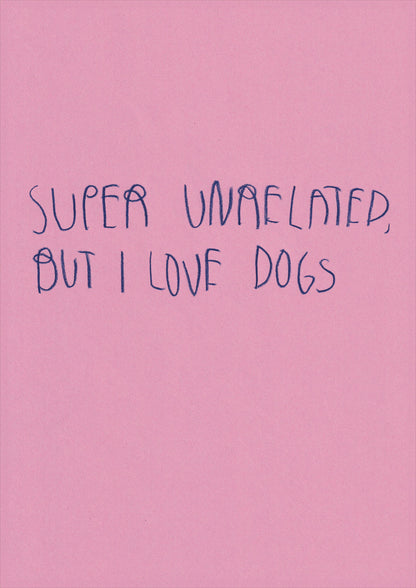 SUPER UNRELATED,
BUT I LOVE DOGS